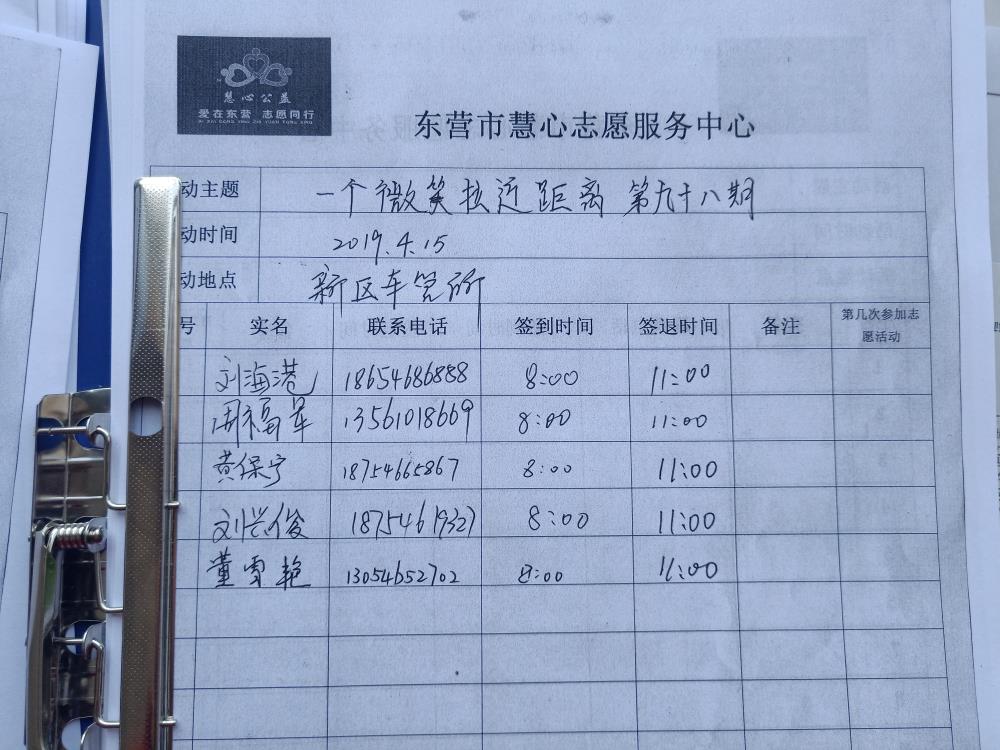 慧心公益
爱在东营 志愿同行
AI ZAI DONG YING ZHI YUAN TONG XING
东营市慧心志愿服务中心
动主题 一个微笑拉近距离 第九十八期
动时间 2019.4.15
动地点 新区车管所
号 实名 联系电话 签到时间 签退时间 备注 第几次参加志
愿活动
刘海港 18654686888 8:00 11:00
周福军 13561018669 8:00 11:00
黄保宁 18754665867 8:00 11:00
刘兴俊 18754619327 8:00 11:00
董雪艳 13054652702 8:00 11:00